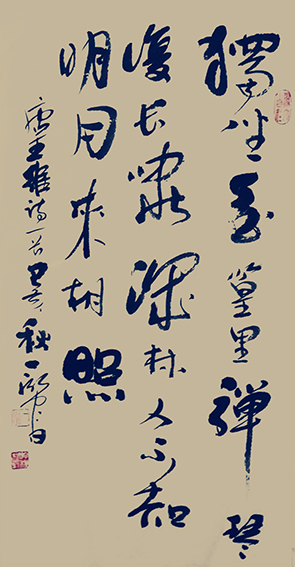 獨坐幽篁里彈琴
復长嘯深林人不知
明月来相照
唐王維诗一首己亥秋書